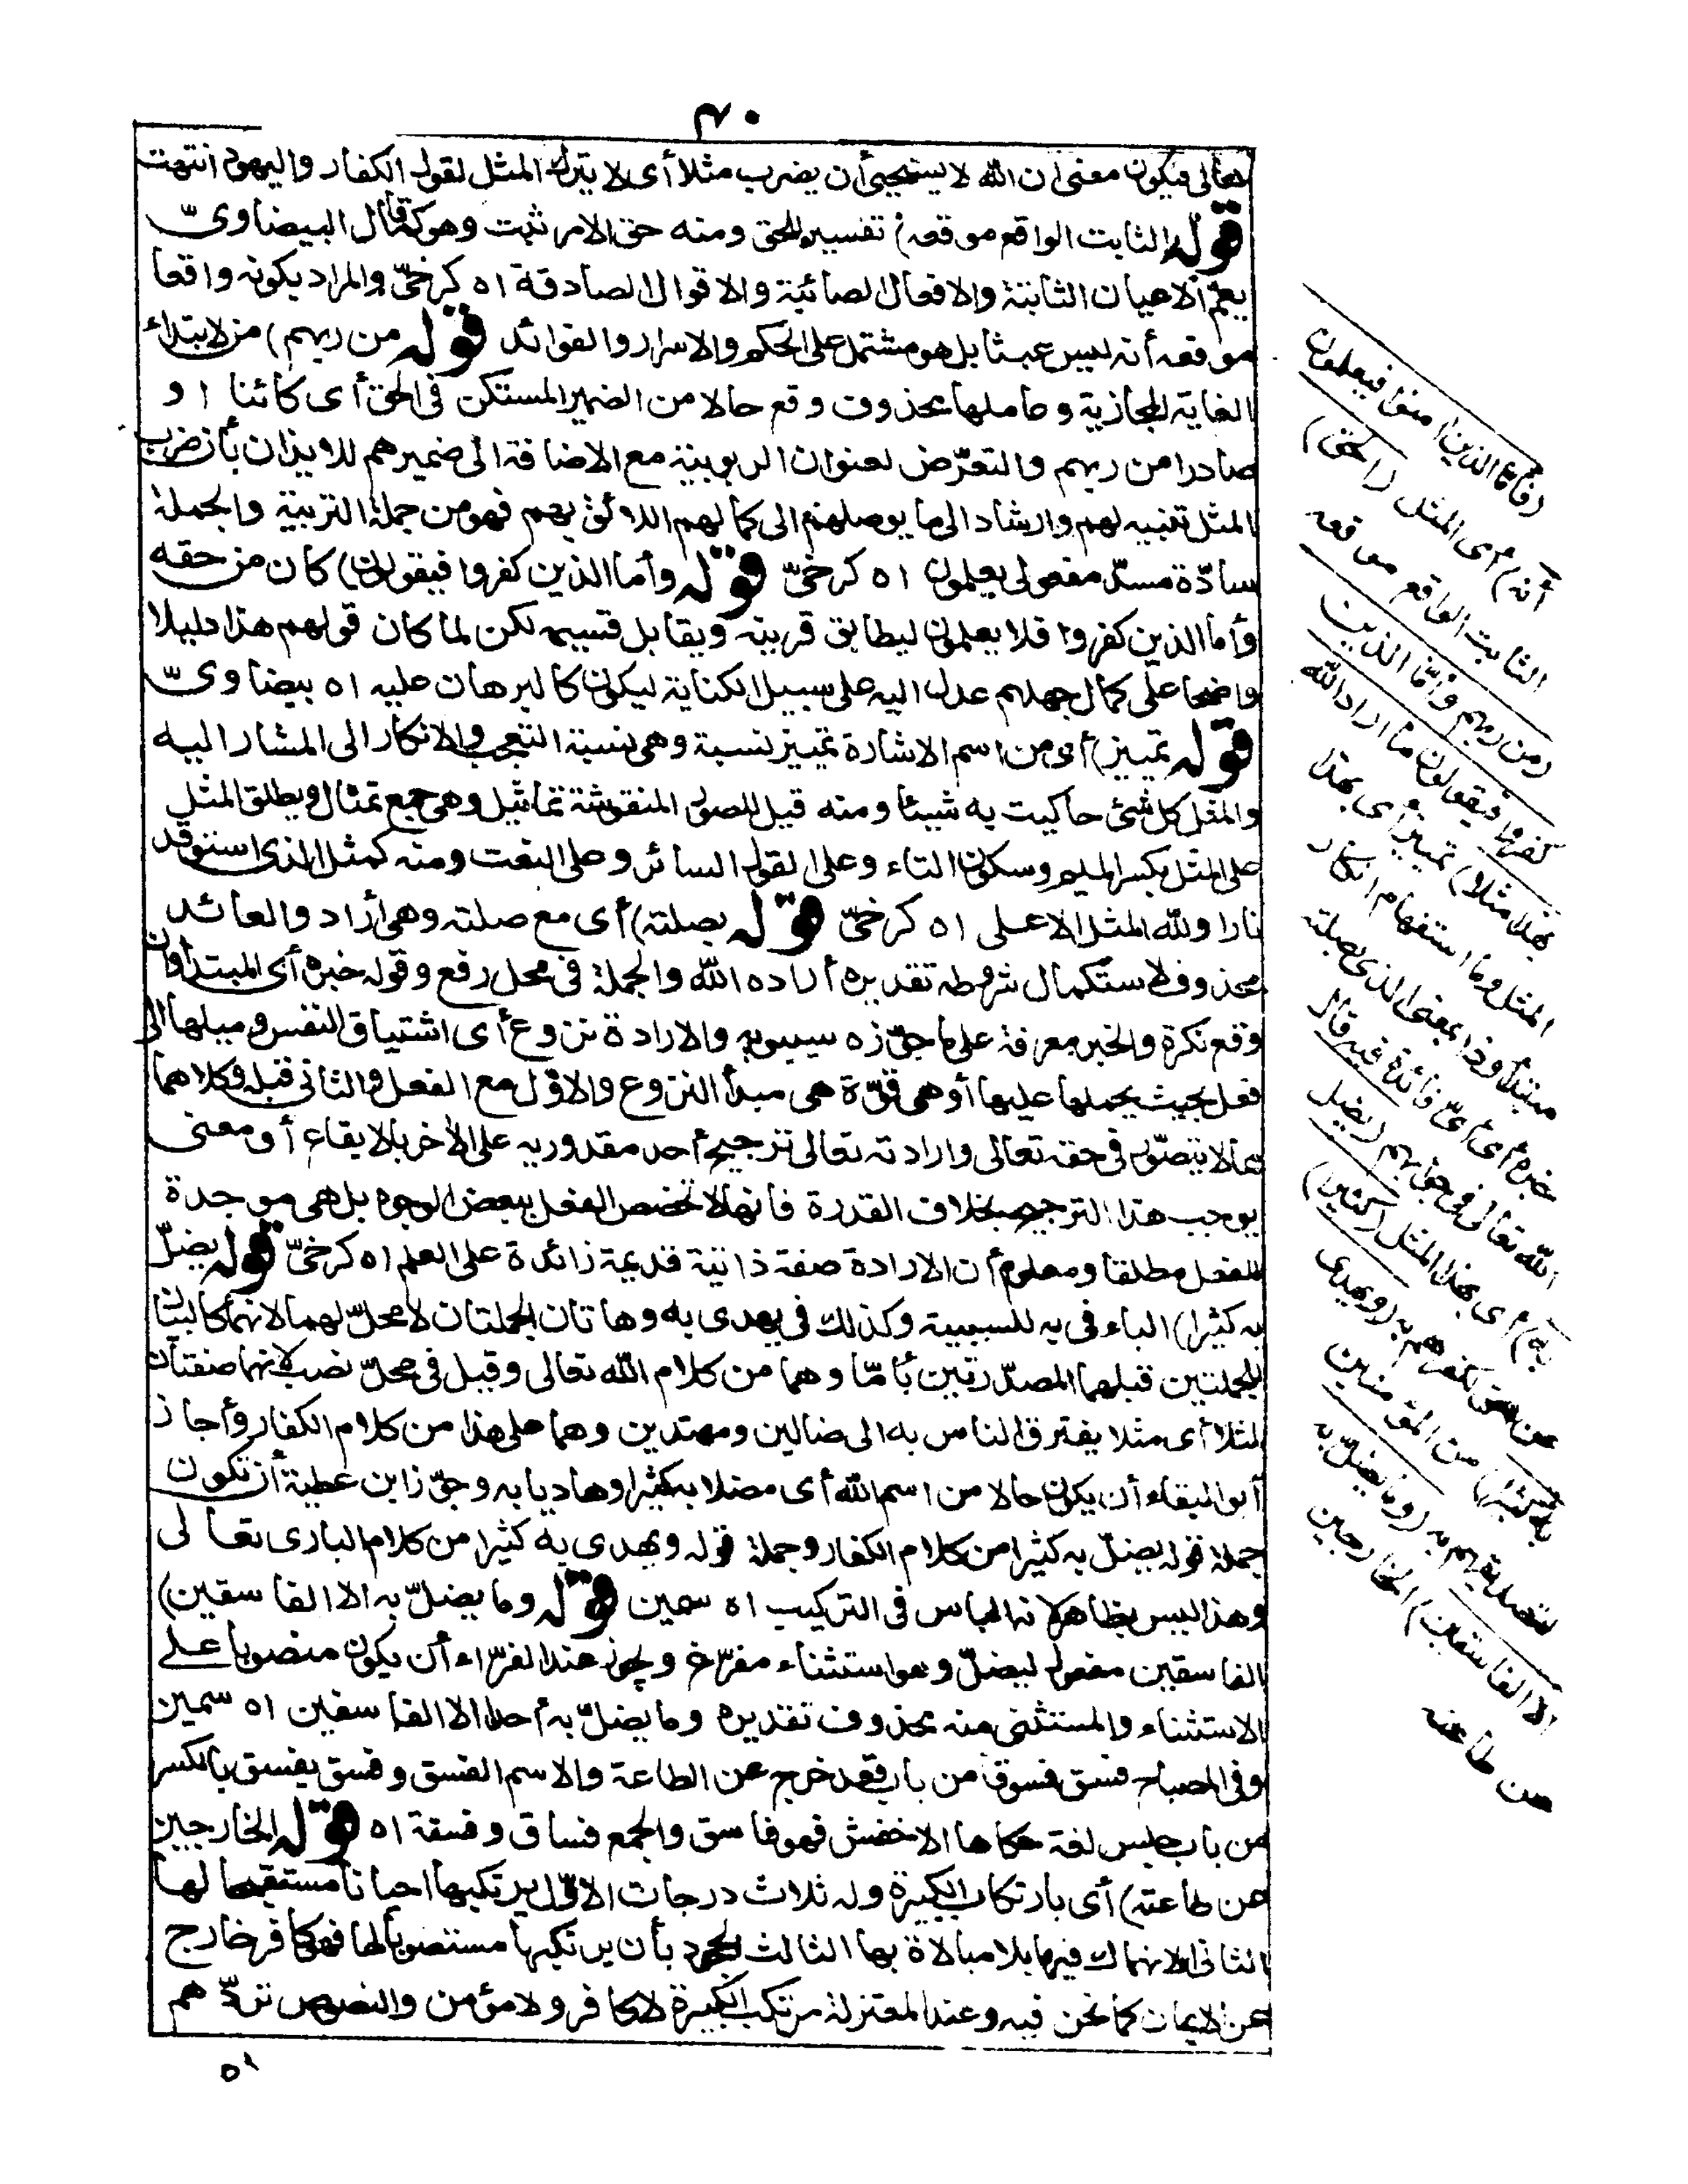 ٤٠
تعالى فيكون معنى ان الله لا يستحيى أن يضرب مثلا أى لا يترك المثل لقول الكفار واليهود انتهت
قوله الثابت الواقع موقعه) تفسير للحق ومنه حق الامر ثبت وهو كما قال البيضاوىّ
يعمّ الاعيان الثابتة والافعال الصائبة والاقوال الصادقة اه كرخىّ والمراد بكونه واقعا
موقعه أنه ليس عبثا بل هو مشتمل على الحكم والاسرار والفوائد قوله من ربهم) من لابتداء
الغاية المجازية وعاملها محذوف وقع حالا من الضمير المستكن فى الحق أى كائنا او
صادرا من ربهم والتعرّض لعنوان الربوبية مع الاضافة الى ضميرهم للايذان بأن ضرب
المثل تنبيه لهم وارشاد الى ما يوصلهم الى كمالهم اللائق بهم فهو من جملة التربية والجملة
سادّة مسدّ مفعولى يعلمون اه كرخىّ قوله وأما الذين كفروا فيقولون) كان من حقه
وأما الذين كفروا فلا يعلمون ليطابق قرينه ويقابل قسيمه لكن لما كان قولهم هذا دليلا
واضحا على كمال جهلهم عدل اليه على سبيل الكناية ليكون كالبرهان عليه اه بيضاوىّ
قوله تمييز) أى من اسم الاشارة تمييز نسبة وهى نسبة التعجب والانكار الى المشار اليه
والمثل كل شئ حاكيت به شيئا ومنه قيل للصور المنقوشة تماثيل وهى جمع تمثال ويطلق المثل
على المثل بكسر الميم وسكون الثاء وعلى القول السائر وعلى النعت ومنه كمثل الذى استوقد
نارا ولله المثل الاعلى اه كرخىّ قوله بصلته) أى مع صلته وهى أراد والعائد
محذوف لاستكمال شروطه تقديره أراده الله والجملة فى محل رفع وقوله خبره أى المبتدا وان
وقع نكرة والخبر معرفة على ما جوّزه سيبويه والارادة نزوع أى اشتياق النفس وميلها الى
فعل بحيث يحملها عليها أو هى قوّة هى مبدأ النزوع والاوّل مع الفعل والثانى قبله وكلاهما
مما لا يتصوّر فى حقه تعالى وارادته تعالى ترجيح أحد مقدوريه على الآخر بالايقاع أو معنى
يوجب هذا الترجيح بخلاف القدرة فانها لا تخصص الفعل ببعض الوجوه بل هى موجدة
للفعل مطلقا ومعلوم أن الارادة صفة ذاتية قديمة زائدة على العلم اه كرخىّ قوله يضلّ
به كثيرا) الباء فى به للسببية وكذلك فى يهدى به وهاتان الجملتان لا محلّ لهما لانهما كالبيان
للجملتين قبلهما المصدّرتين بأمّا وهما من كلام الله تعالى وقيل فى محلّ نصب لانهما صفتان
لمثلا أى مثلا يفترق الناس به الى ضالين ومهتدين وهما على هذا من كلام الكفار وأجاز
أبو البقاء أن يكون حالا من اسم الله أى مضلا به كثيرا وهاديا به وجوّز ابن عطية أن تكون
جملة قوله يضلّ به كثيرا من كلام الكفار وجملة قوله ويهدى به كثيرا من كلام البارى تعالى
وهذا ليس بظاهر لانه الباس فى التركيب اه سمين قوله وما يضلّ به الا الفاسقين)
الفاسقين مفعول ليضلّ وهو استثناء مفرّغ ويجوز عند الفرّاء أن يكون منصوبا على
الاستثناء والمستثنى منه محذوف تقديره وما يضلّ به أحدا الا الفاسقين اه سمين
وفى المصباح فسق فسوقا من باب قعد خرج عن الطاعة والاسم الفسق وفسق يفسق بالكسر
من باب جلس لغة حكاها الاخفش فهو فاسق والجمع فساق وفسقة اه قوله الخارجين
عن طاعته) أى بارتكاب الكبيرة وله ثلاث درجات الاوّل يرتكبها احيانا مستقبحا لها
الثانى الانهماك فيها بلا مبالاة بها الثالث الجحود بأن يرتكبها مستصوبا لها فهو كافر خارج
عن الايمان كما نحن فيه وعند المعتزلة مرتكب الكبيرة لا كافر ولا مؤمن والنصوص تردّهم
(فأما الذين امنوا فيعلمون
أنه) أى المثل (الحق)
الثابت الواقع موقعه
(من ربهم وأمّا الذين
كفروا فيقولون ما اراد الله
بهذا مثلا) تمييز أى بهذا
المثل وما استفهام انكار
مبتدأ وذا بمعنى الذى بصلته
خبره أى أىّ فائدة فيه قال
الله تعالى فى جوابهم (يضل
به) أى بهذا المثل (كثيرا)
عن الحق لكفرهم به (ويهدى
به كثيرا) من المؤمنين
لتصديقهم به (وما يضلّ به
الا الفاسقين) الخارجين
عن طاعته